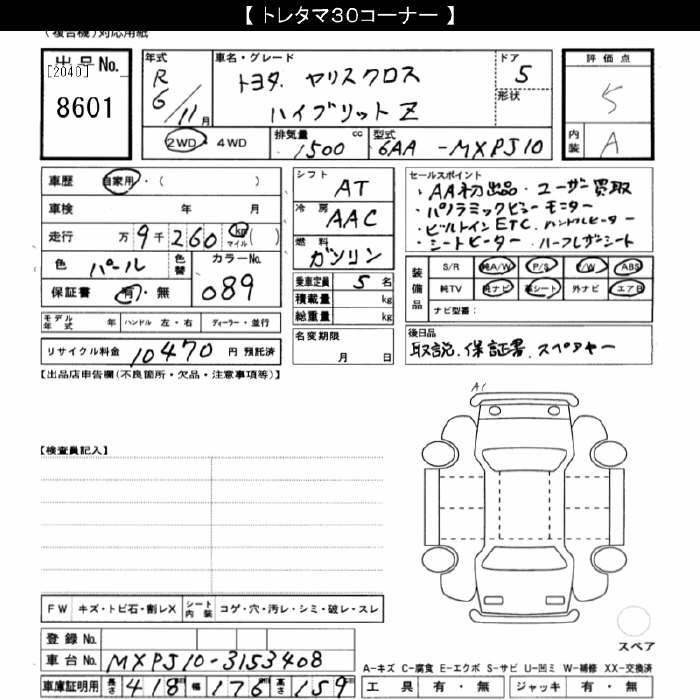 【 トレタマ30コーナー 】
(複合機)対応用紙
出品No.
[2040]
8601
年式 R 6/11月
車名・グレード トヨタ ヤリスクロス ハイブリット Z
ドア 5
形状
2WD・4WD
排気量 1500 cc
型式 6AA-MXPJ10
評価点 5
内装 A
車歴 自家用・( )
車検 年 月
走行 万 9千260 km マイル ( )
色 パール 色替 カラーNo. 089
保証書 有・無
モデル年式 年 ハンドル 左・右 ディーラー・並行
リサイクル料金 10470 円 預託済
シフト AT
冷房 AAC
燃料 ガソリン
乗車定員 5 名
積載量 kg
総重量 kg
名変期限 月 日
セールスポイント
・AA初出品・ユーザー買取
・パノラミックビューモニター
・ビルトインETC・ハンドルヒーター
・シートヒーター・ハーフレザーシート
装備品 S/R 純A/W P/S P/W ABS
純TV 純ナビ 革シート 外ナビ エアB
ナビ型番:
後日品
取説.保証書.スペアキー
【出品店申告欄(不良箇所・欠品・注意事項等)】
A1
【検査員記入】
FW キズ・トビ石・割レX シート内装 コゲ・穴・汚レ・シミ・破レ・スレ
スペア
登録No.
車台No. MXPJ10-3153408
車庫証明用 長さ 418 幅 176 高さ 159
A-キズ C-腐食 E-エクボ S-サビ U-凹ミ W-補修 XX-交換済
工具 有・無 ジャッキ 有・無